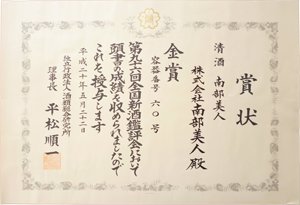 賞状
清酒 南部美人
株式会社南部美人殿
金賞
容器番号 六〇号
第九十六回全国新酒鑑評会において
頭書の成績を収められましたので
これを授与します
平成二十年五月二十二日
独立行政法人酒類総合研究所
理事長 平松順一